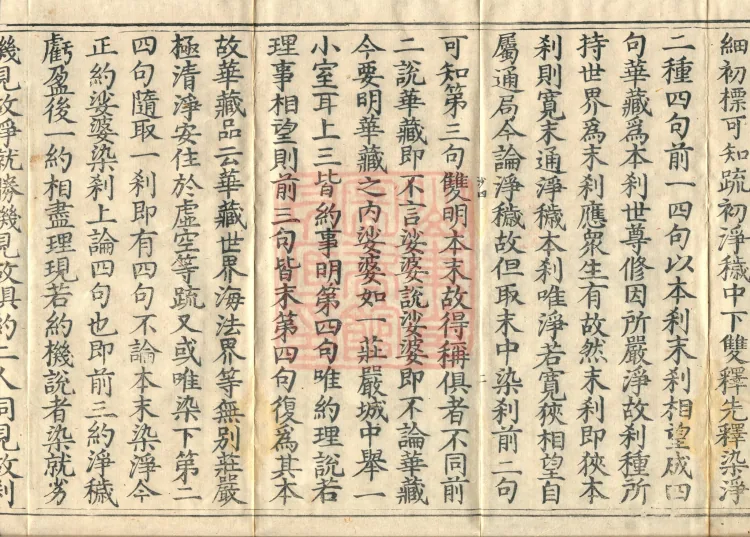 細初標可知疏初淨穢中下雙釋先釋染淨
二種四句前一四句以本刹末刹相望成四
句華藏爲本刹世尊修因所嚴淨故刹種所
持世界爲末刹應衆生有故然末刹即狹本
刹則寬末通淨穢本刹唯淨若寬狹相望自
屬通局今論淨穢故但取末中染刹前二句
可知第三句雙明本末故得稱俱者不同前
二說華藏即不言娑婆說娑婆即不論華藏
今要明華藏之内娑婆如一莊嚴城中舉一
小室耳上三皆約事明第四句唯約理說若
理事相望則前三句皆末第四句復爲其本
故華藏品云華藏世界海法界等無別莊嚴
極清淨安住於虛空等疏又或唯染下第二
四句隨取一刹即有四句不論本末染淨今
正約娑婆染刹上論四句也即前三約淨穢
虧盈後一約相盡理現若約機說者染就劣
機見故淨就勝機見故俱約二人同見故刹